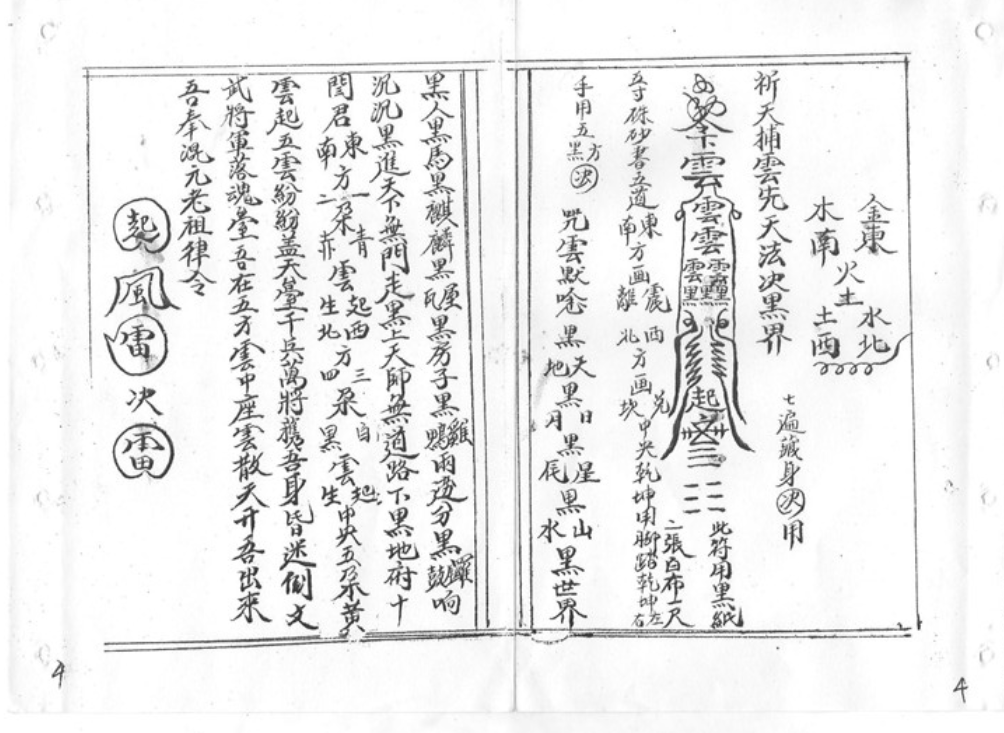 金東
水北
火土
木南
土西
七遍藏身决用
祈天捕雲先天法决黑界
此符用黑紙
二張白布一尺
雲
雲雲
起
五寸硃砂書五道東方画震西方画兌
南方画離北方画坎中央乾坤用脚踏乾坤左右
手用五方黑决
咒雲默唸黑天黑日黑星黑山黑世界
地月辰水
黑人黑馬黑麒麟黑瓦屋黑房子黑雞鴨兩邊分黑鑼鼓响
沉沉黑進天下無門走黑上天師無道路下黑地府十
閏君東方一朶青雲起西方三朶白雲起中央五朶黃
南二赤生北四黑生
雲起五雲紛紛盖天臺千兵萬將舊吾身皆迷倒文
武將軍落魂臺吾在五方雲中座雲散天开吾出來
吾奉混元老祖律令
起風雷决雷
4
4